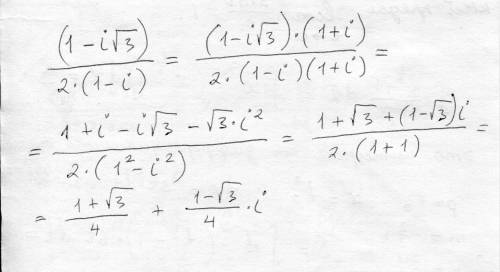 (1-i√3) / 2·(1-i) = (1-i√3)·(1+i) / 2·(1-i)(1+i) =
= 1+i-i√3-√3·i² / 2·(1²-i²) = 1+√3+(1-√3)i / 2·(1+1) =
= 1+√3 / 4 + 1-√3 / 4 ·i